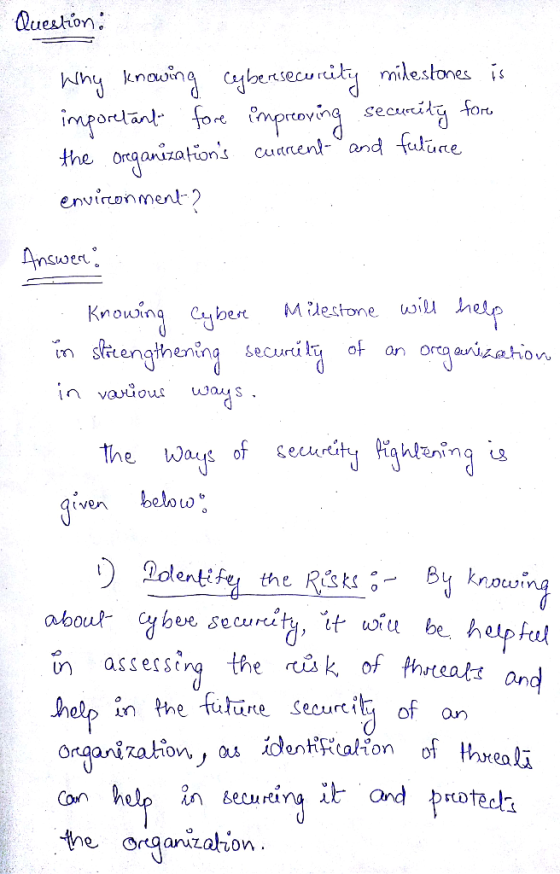 Question:
Why knowing cybersecurity milestones is
important for improving security for
the organization's current and future
environment?
Answer:
Knowing Cyber Milestone will help
in strengthening security of an organization
in various ways.
The Ways of security tightening is
given below:
1) Identify the Risks :- By knowing
about cyber security, it will be helpful
in assessing the risk of threats and
help in the future security of an
organization, as identification of threats
can help in securing it and protects
the organization.